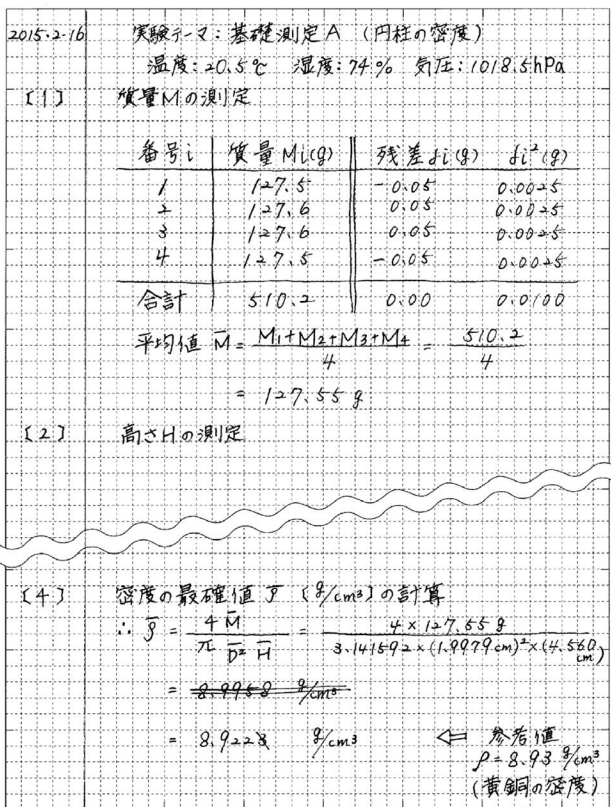 2015.2.16 実験テーマ:基礎測定A (円柱の密度)
温度:20.5℃ 湿度:74% 気圧:1018.5hPa
[1] 質量Mの測定
番号i 質量Mi(g) 残差di(g) di²(g)
1 127.5 -0.05 0.0025
2 127.6 0.05 0.0025
3 127.6 0.05 0.0025
4 127.5 -0.05 0.0025
合計 510.2 0.00 0.0100
平均値 M̄ = (M1+M2+M3+M4)/4 = 510.2/4
= 127.55 g
[2] 高さHの測定
[4] 密度の最確値 ρ̄ [g/cm³]の計算
∴ ρ̄ = 4M̄/(π D̄² H̄) = 4×127.55g/(3.141592×(1.9979cm)²×(4.560cm))
= 8.9958 g/cm³
= 8.9223 g/cm³ ⇐ 参考値
ρ=8.93 g/cm³
(黄銅の密度)